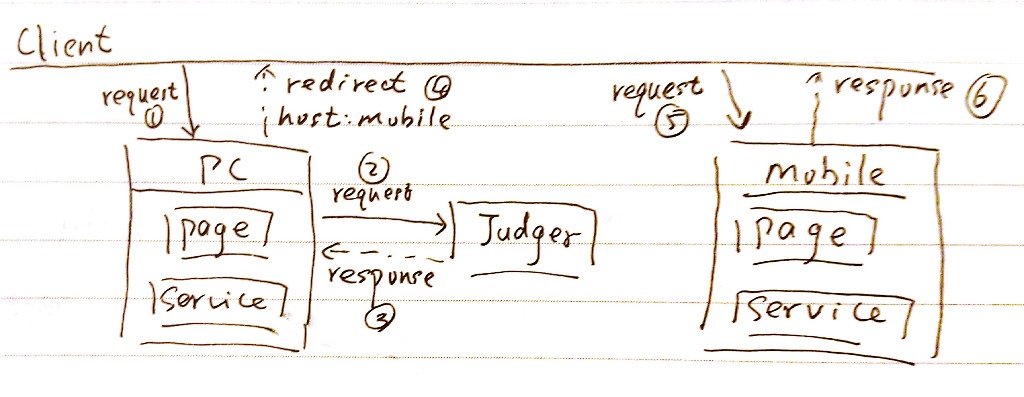 Client
request
①
redirect ④
host:mobile
PC
page
Service
②
request
response
③
Judger
request
⑤
response ⑥
mobile
page
Service